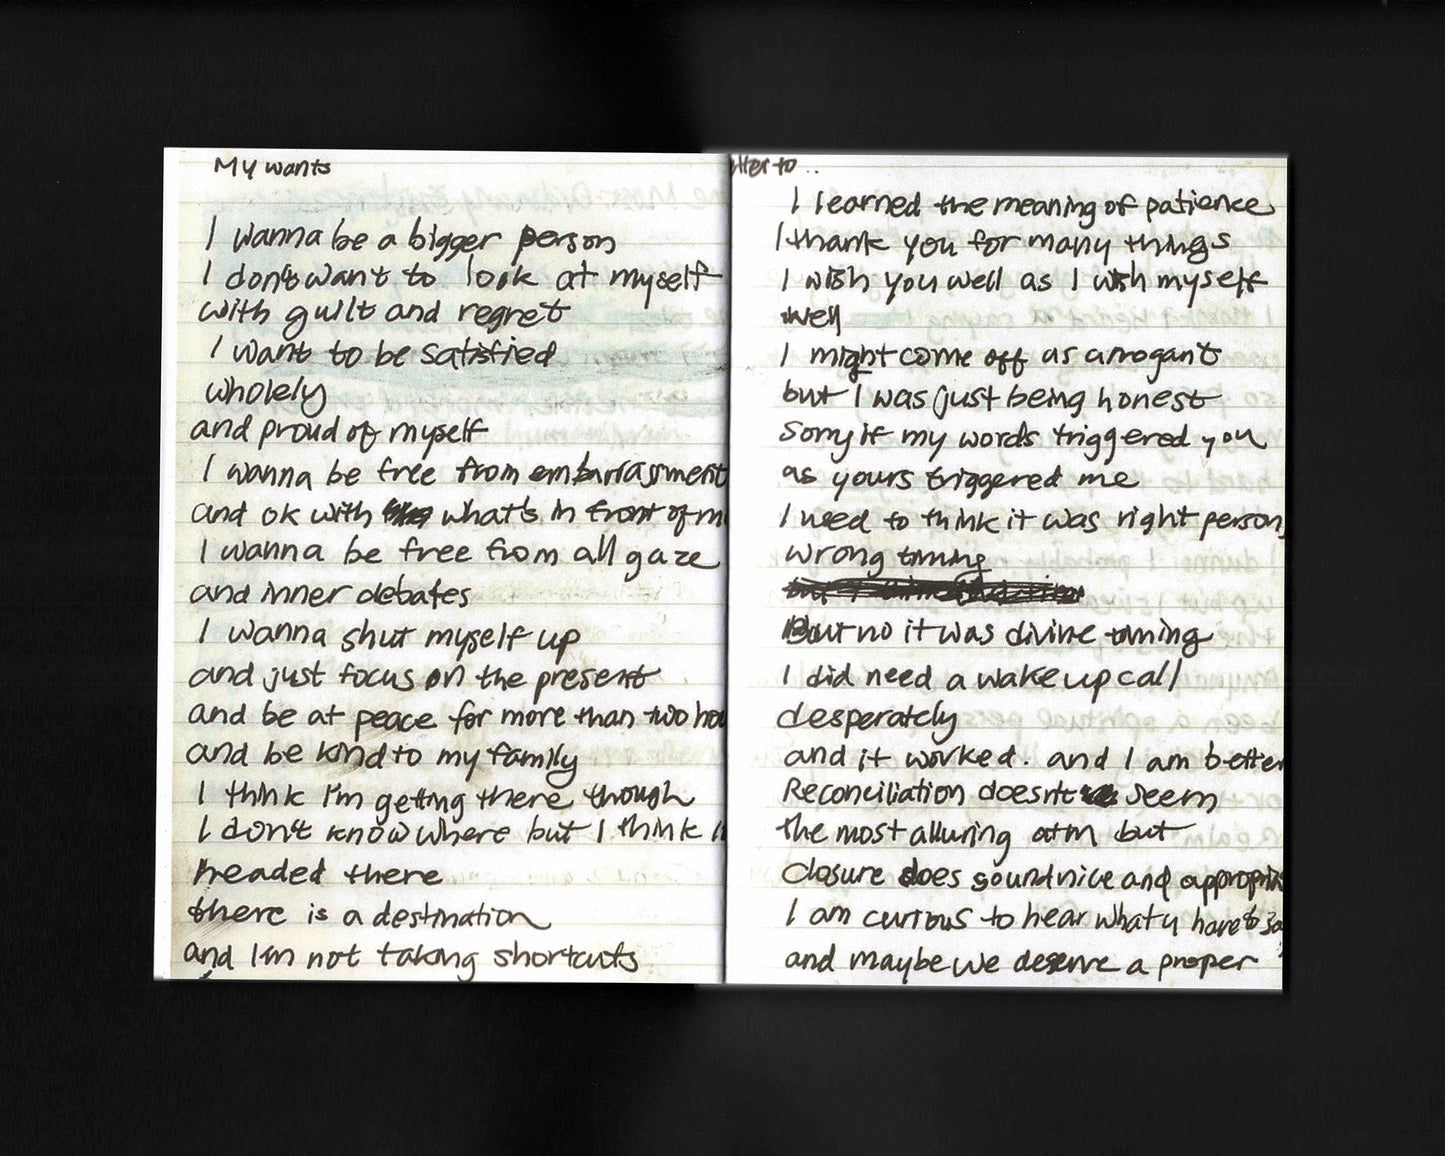 My wants
I wanna be a bigger person
I don't want to look at myself
with guilt and regret
I want to be satisfied
wholely
and proud of myself
I wanna be free from embarrassment
and ok with what's in front of m
I wanna be free from all gaze
and inner debates
I wanna shut myself up
and just focus on the present
and be at peace for more than two hou
and be kind to my family
I think I'm getting there though
I don't know where but I think I
headed there
there is a destination
and I'm not taking shortcuts
tter to ..
I learned the meaning of patience
I thank you for many things
I wish you well as I wish myself
well
I might come off as arrogant
but I was just being honest
Sorry if my words triggered you
as yours triggered me
I used to think it was right person,
wrong timing
But no it was divine timing
I did need a wake up call
desperately
and it worked. and I am better
Reconciliation doesn't seem
the most alluring atm but
Closure does sound nice and appropria
I am curious to hear what u have to sa
and maybe we deserve a proper